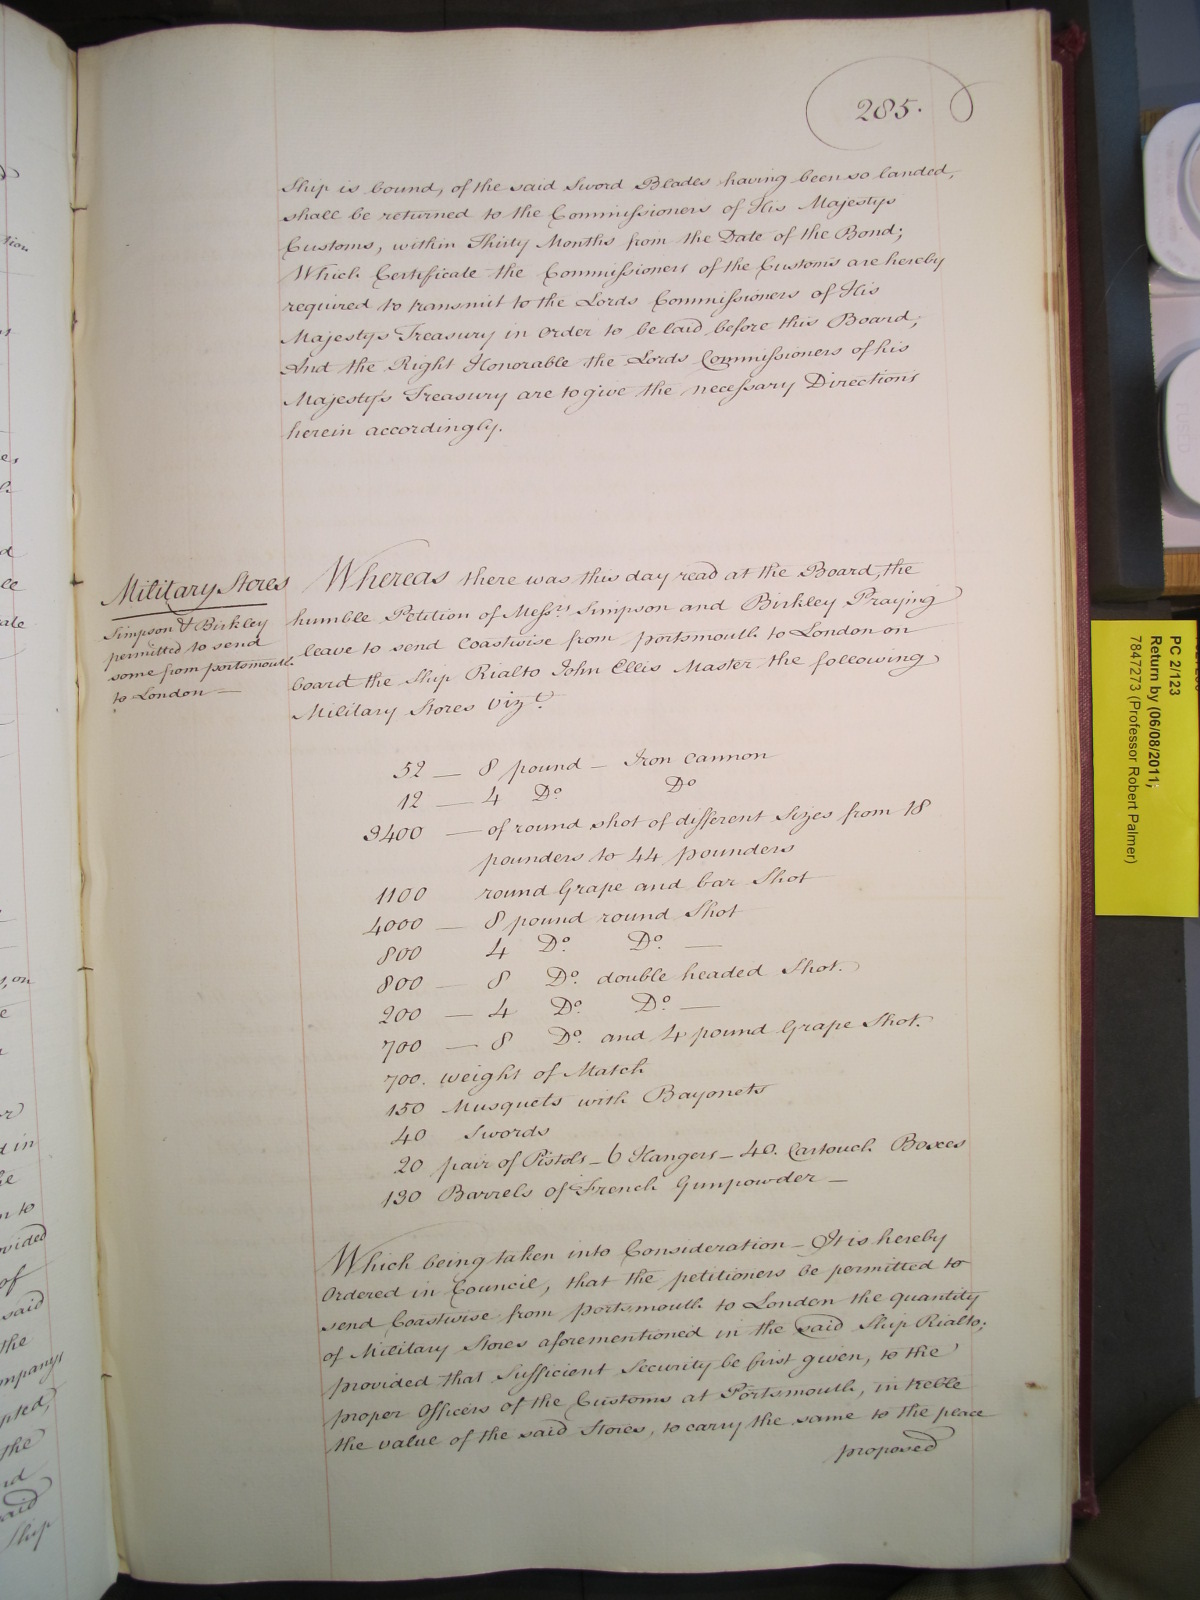 285.
Ship is bound, of the said Sword Blades having been so landed,
shall be returned to the Commissioners of His Majestys
Customs, within Thirty Months from the Date of the Bond;
Which Certificate the Commissioners of the Customs are hereby
required to transmit to the Lords Commissioners of His
Majestys Treasury in Order to be laid before this Board;
And the Right Honorable the Lords Commissioners of his
Majesty's Treasury are to give the necessary Directions
herein accordingly.
Military Stores
Simpson & Birkley
permitted to send
some from portsmouth
to London —
Whereas there was this day read at the Board, the
humble Petition of Messrs. Simpson and Birkley Praying
leave to send Coastwise from portsmouth to London on
board the Ship Rialto John Ellis Master the following
Military Stores Vizt.
52 — 8 pound — Iron Cannon
12 — 4 Do Do
9400 — of round shot of different Sizes from 18
pounders to 44 pounders
1100 round Grape and bar Shot
4000 — 8 pound round Shot
800 4 Do. Do. —
800 — 8 Do. double headed Shot.
200 — 4 Do. Do. —
700 — 8 Do. and 4 pound Grape Shot.
700. weight of Match
150 Musquets with Bayonets
40 Swords
20 pair of Pistols — 6 Hangers — 40. Cartouch Boxes
190 Barrels of French Gunpowder —
Which being taken into Consideration — It is hereby
Ordered in Council, that the petitioners be permitted to
send Coastwise from portsmouth to London the quantity
of Military Stores aforementioned in the said Ship Rialto;
provided that Sufficient Security be first given, to the
proper Officers of the Customs at Portsmouth, in treble
the value of the said Stores, to carry the same to the place
proposed
PC 2/123
Return by (06/08/2011;
7847273 (Professor Robert Palmer)